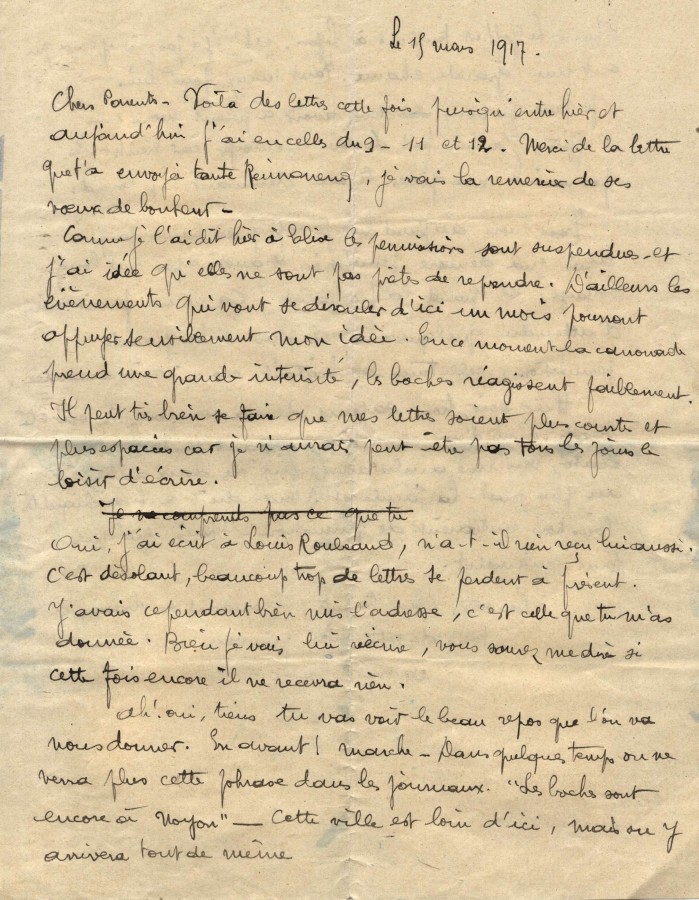 Le 15 mars 1917.
Chers Parents - Voilà des lettres cette fois puisqu'entre hier et
aujourd'hui j'ai eu celles du 9 - 11 et 12. Merci de la lettre
que t'a envoyée tante, je vais la remercier de ses
vœux de bonheur -
- Comme je l'ai dit hier à les permissions sont suspendues et
j'ai idée qu'elles ne sont pas prêtes de reprendre. D'ailleurs les
évènements qui vont se dérouler d'ici un mois pourront
appuyer sensiblement mon idée. En ce moment la canonnade
prend une grande intensité, les boches réagissent faiblement.
Il peut très bien se faire que mes lettres soient plus courtes et
plus espacées car je n'aurai peut-être pas tous les jours le
loisir d'écrire.
Je ne comprends pas ce que tu
Oui, j'ai écrit à Louis, n'a-t-il rien reçu lui aussi.
C'est désolant, beaucoup trop de lettres se perdent à présent.
J'avais cependant bien mis l'adresse, c'est celle que tu m'as
donnée. Bien je vais lui réécrire, vous saurez me dire si
cette fois encore il ne recevra rien.
Ah! oui, tiens tu vas voir le beau repos que l'on va
nous donner. En avant! marche - Dans quelques temps on ne
verra plus cette phrase dans les journaux. "Les boches sont
encore à Noyon" - Cette ville est loin d'ici, mais on y
arrivera tout de même